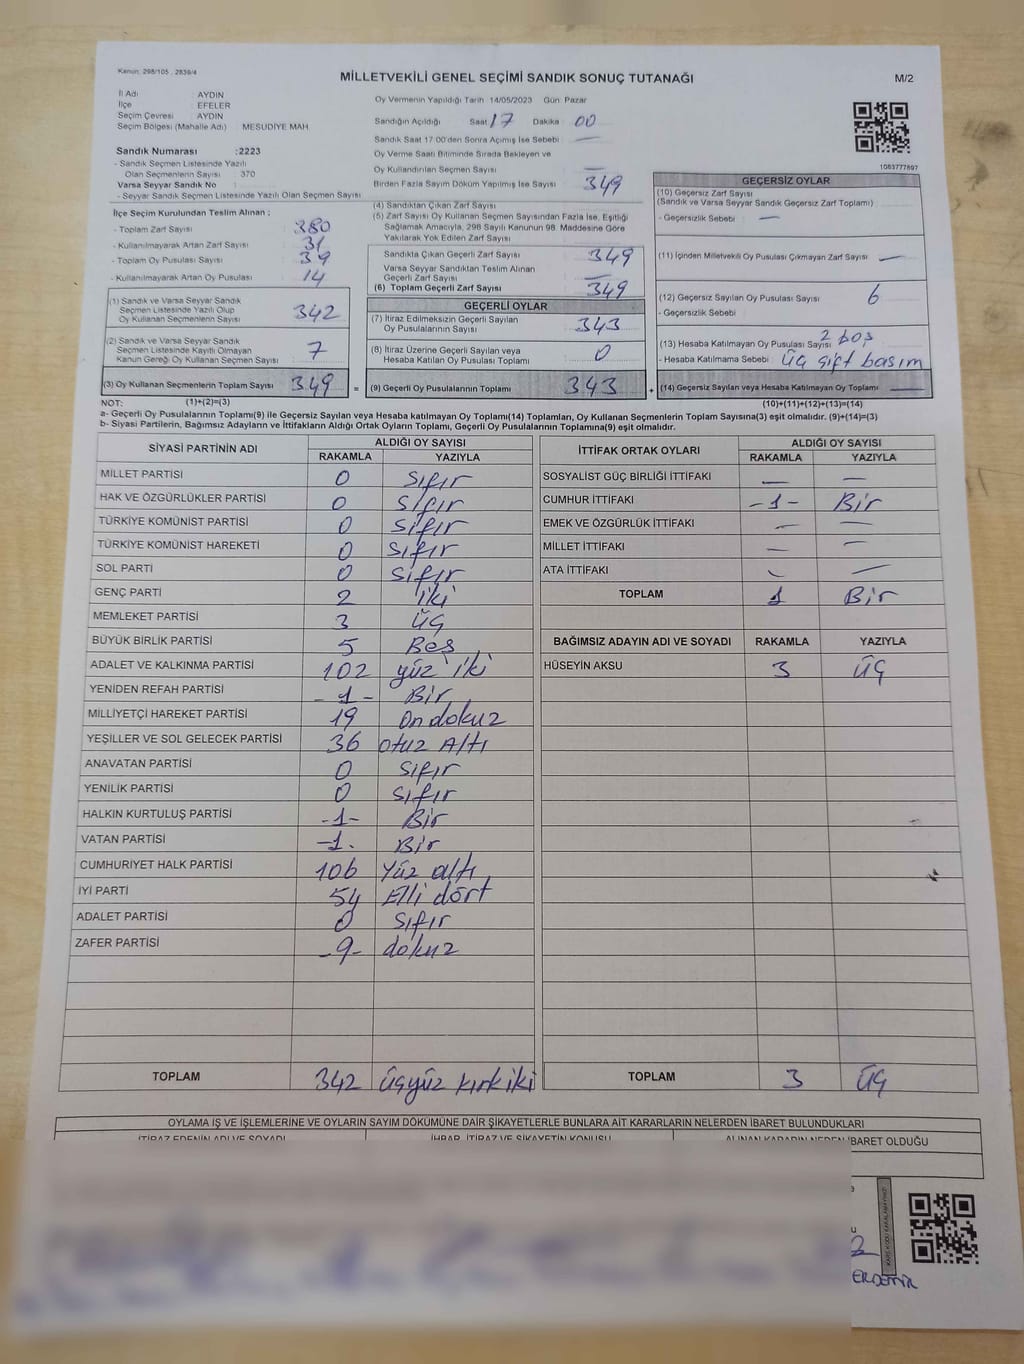 Kanun: 298/105 , 2839/4
MİLLETVEKİLİ GENEL SEÇİMİ SANDIK SONUÇ TUTANAĞI
M/2
İl Adı : AYDIN
İlçe : EFELER
Seçim Çevresi : AYDIN
Seçim Bölgesi (Mahalle Adı) : MESUDİYE MAH
Sandık Numarası :2223
- Sandık Seçmen Listesinde Yazılı
Olan Seçmenlerin Sayısı : 370
Varsa Seyyar Sandık No :
- Seyyar Sandık Seçmen Listesinde Yazılı Olan Seçmen Sayısı
Oy Vermenin Yapıldığı Tarih 14/05/2023 Gün: Pazar
Sandığın Açıldığı Saat 17 Dakika 00
Sandık Saat 17 00'den Sonra Açmış İse Sebebi : —
Oy Verme Saati Bitiminde Sırada Bekleyen ve
Oy Kullandırılan Seçmen Sayısı —
Birden Fazla Sayım Döküm Yapılmış İse Sayısı : 349
1083777897
İlçe Seçim Kurulundan Teslim Alınan ;
- Toplam Zarf Sayısı : 380
- Kullanılmayarak Artan Zarf Sayısı : 31
- Toplam Oy Pusulası Sayısı : 39
- Kullanılmayarak Artan Oy Pusulası : 14
(1) Sandık ve Varsa Seyyar Sandık
Seçmen Listesinde Yazılı Olup
Oy Kullanan Seçmenlerin Sayısı : 342
(2) Sandık ve Varsa Seyyar Sandık
Seçmen Listesinde Kayıtlı Olmayan
Kanun Gereği Oy Kullanan Seçmen Sayısı : 7
(3) Oy Kullanan Seçmenlerin Toplam Sayısı 349 =
(4) Sandıktan Çıkan Zarf Sayısı
(5) Zarf Sayısı Oy Kullanan Seçmen Sayısından Fazla İse, Eşitliği
Sağlamak Amacıyla, 298 Sayılı Kanunun 98. Maddesine Göre
Yakılarak Yok Edilen Zarf Sayısı
Sandıkta Çıkan Geçerli Zarf Sayısı 349
Varsa Seyyar Sandıktan Teslim Alınan
Geçerli Zarf Sayısı —
(6) Toplam Geçerli Zarf Sayısı 349
GEÇERLİ OYLAR
(7) İtiraz Edilmeksizin Geçerli Sayılan
Oy Pusulalarının Sayısı : 343
(8) İtiraz Üzerine Geçerli Sayılan veya
Hesaba Katılan Oy Pusulası Toplamı : 0
(9) Geçerli Oy Pusulalarının Toplamı : 343 +
GEÇERSİZ OYLAR
(10) Geçersiz Zarf Sayısı
(Sandık ve Varsa Seyyar Sandık Geçersiz Zarf Toplamı)
- Geçersizlik Sebebi : —
(11) İçinden Milletvekili Oy Pusulası Çıkmayan Zarf Sayısı —
(12) Geçersiz Sayılan Oy Pusulası Sayısı : 6
- Geçersizlik Sebebi
(13) Hesaba Katılmayan Oy Pusulası Sayısı 2 boş
- Hesaba Katılmama Sebebi : Üç çift basım
(14) Geçersiz Sayılan veya Hesaba Katılmayan Oy Toplamı —
NOT: (1)+(2)=(3)
(10)+(11)+(12)+(13)=(14)
a- Geçerli Oy Pusulalarının Toplamı(9) ile Geçersiz Sayılan veya Hesaba katılmayan Oy Toplamı(14) Toplamları, Oy Kullanan Seçmenlerin Toplam Sayısına(3) eşit olmalıdır. (9)+(14)=(3)
b- Siyasi Partilerin, Bağımsız Adayların ve İttifakların Aldığı Ortak Oyların Toplamı, Geçerli Oy Pusulalarının Toplamına(9) eşit olmalıdır.
SİYASİ PARTİNİN ADI
ALDIĞI OY SAYISI
RAKAMLA YAZIYLA
MİLLET PARTİSİ 0 Sıfır
HAK VE ÖZGÜRLÜKLER PARTİSİ 0 Sıfır
TÜRKİYE KOMÜNİST PARTİSİ 0 Sıfır
TÜRKİYE KOMÜNİST HAREKETİ 0 Sıfır
SOL PARTİ 0 Sıfır
GENÇ PARTİ 2 İki
MEMLEKET PARTİSİ 3 Üç
BÜYÜK BİRLİK PARTİSİ 5 Beş
ADALET VE KALKINMA PARTİSİ 102 yüz iki
YENİDEN REFAH PARTİSİ -1- Bir
MİLLİYETÇİ HAREKET PARTİSİ 19 On dokuz
YEŞİLLER VE SOL GELECEK PARTİSİ 36 otuz Altı
ANAVATAN PARTİSİ 0 Sıfır
YENİLİK PARTİSİ 0 Sıfır
HALKIN KURTULUŞ PARTİSİ -1- Bir
VATAN PARTİSİ -1. Bir
CUMHURİYET HALK PARTİSİ 106 Yüz altı
İYİ PARTİ 54 Elli dört
ADALET PARTİSİ 0 Sıfır
ZAFER PARTİSİ -9- dokuz
TOPLAM 342 Üçyüz kırk iki
İTTİFAK ORTAK OYLARI
ALDIĞI OY SAYISI
RAKAMLA YAZIYLA
SOSYALIST GÜÇ BİRLİĞİ İTTİFAKI — —
CUMHUR İTTİFAKI -1- Bir
EMEK VE ÖZGÜRLÜK İTTİFAKI — —
MİLLET İTTİFAKI — —
ATA İTTİFAKI — —
TOPLAM 1 Bir
BAĞIMSIZ ADAYIN ADI VE SOYADI RAKAMLA YAZIYLA
HÜSEYİN AKSU 3 Üç
TOPLAM 3 Üç
OYLAMA İŞ VE İŞLEMLERİNE VE OYLARIN SAYIM DÖKÜMÜNE DAİR ŞİKAYETLERLE BUNLARA AİT KARARLARIN NELERDEN İBARET BULUNDUKLARI
İTİRAZ EDENİN ADI VE SOYADI İHBAR, İTİRAZ VE ŞİKAYETİN KONUSU ALINAN KARARIN NEDEN İBARET OLDUĞU
ERDEMİR